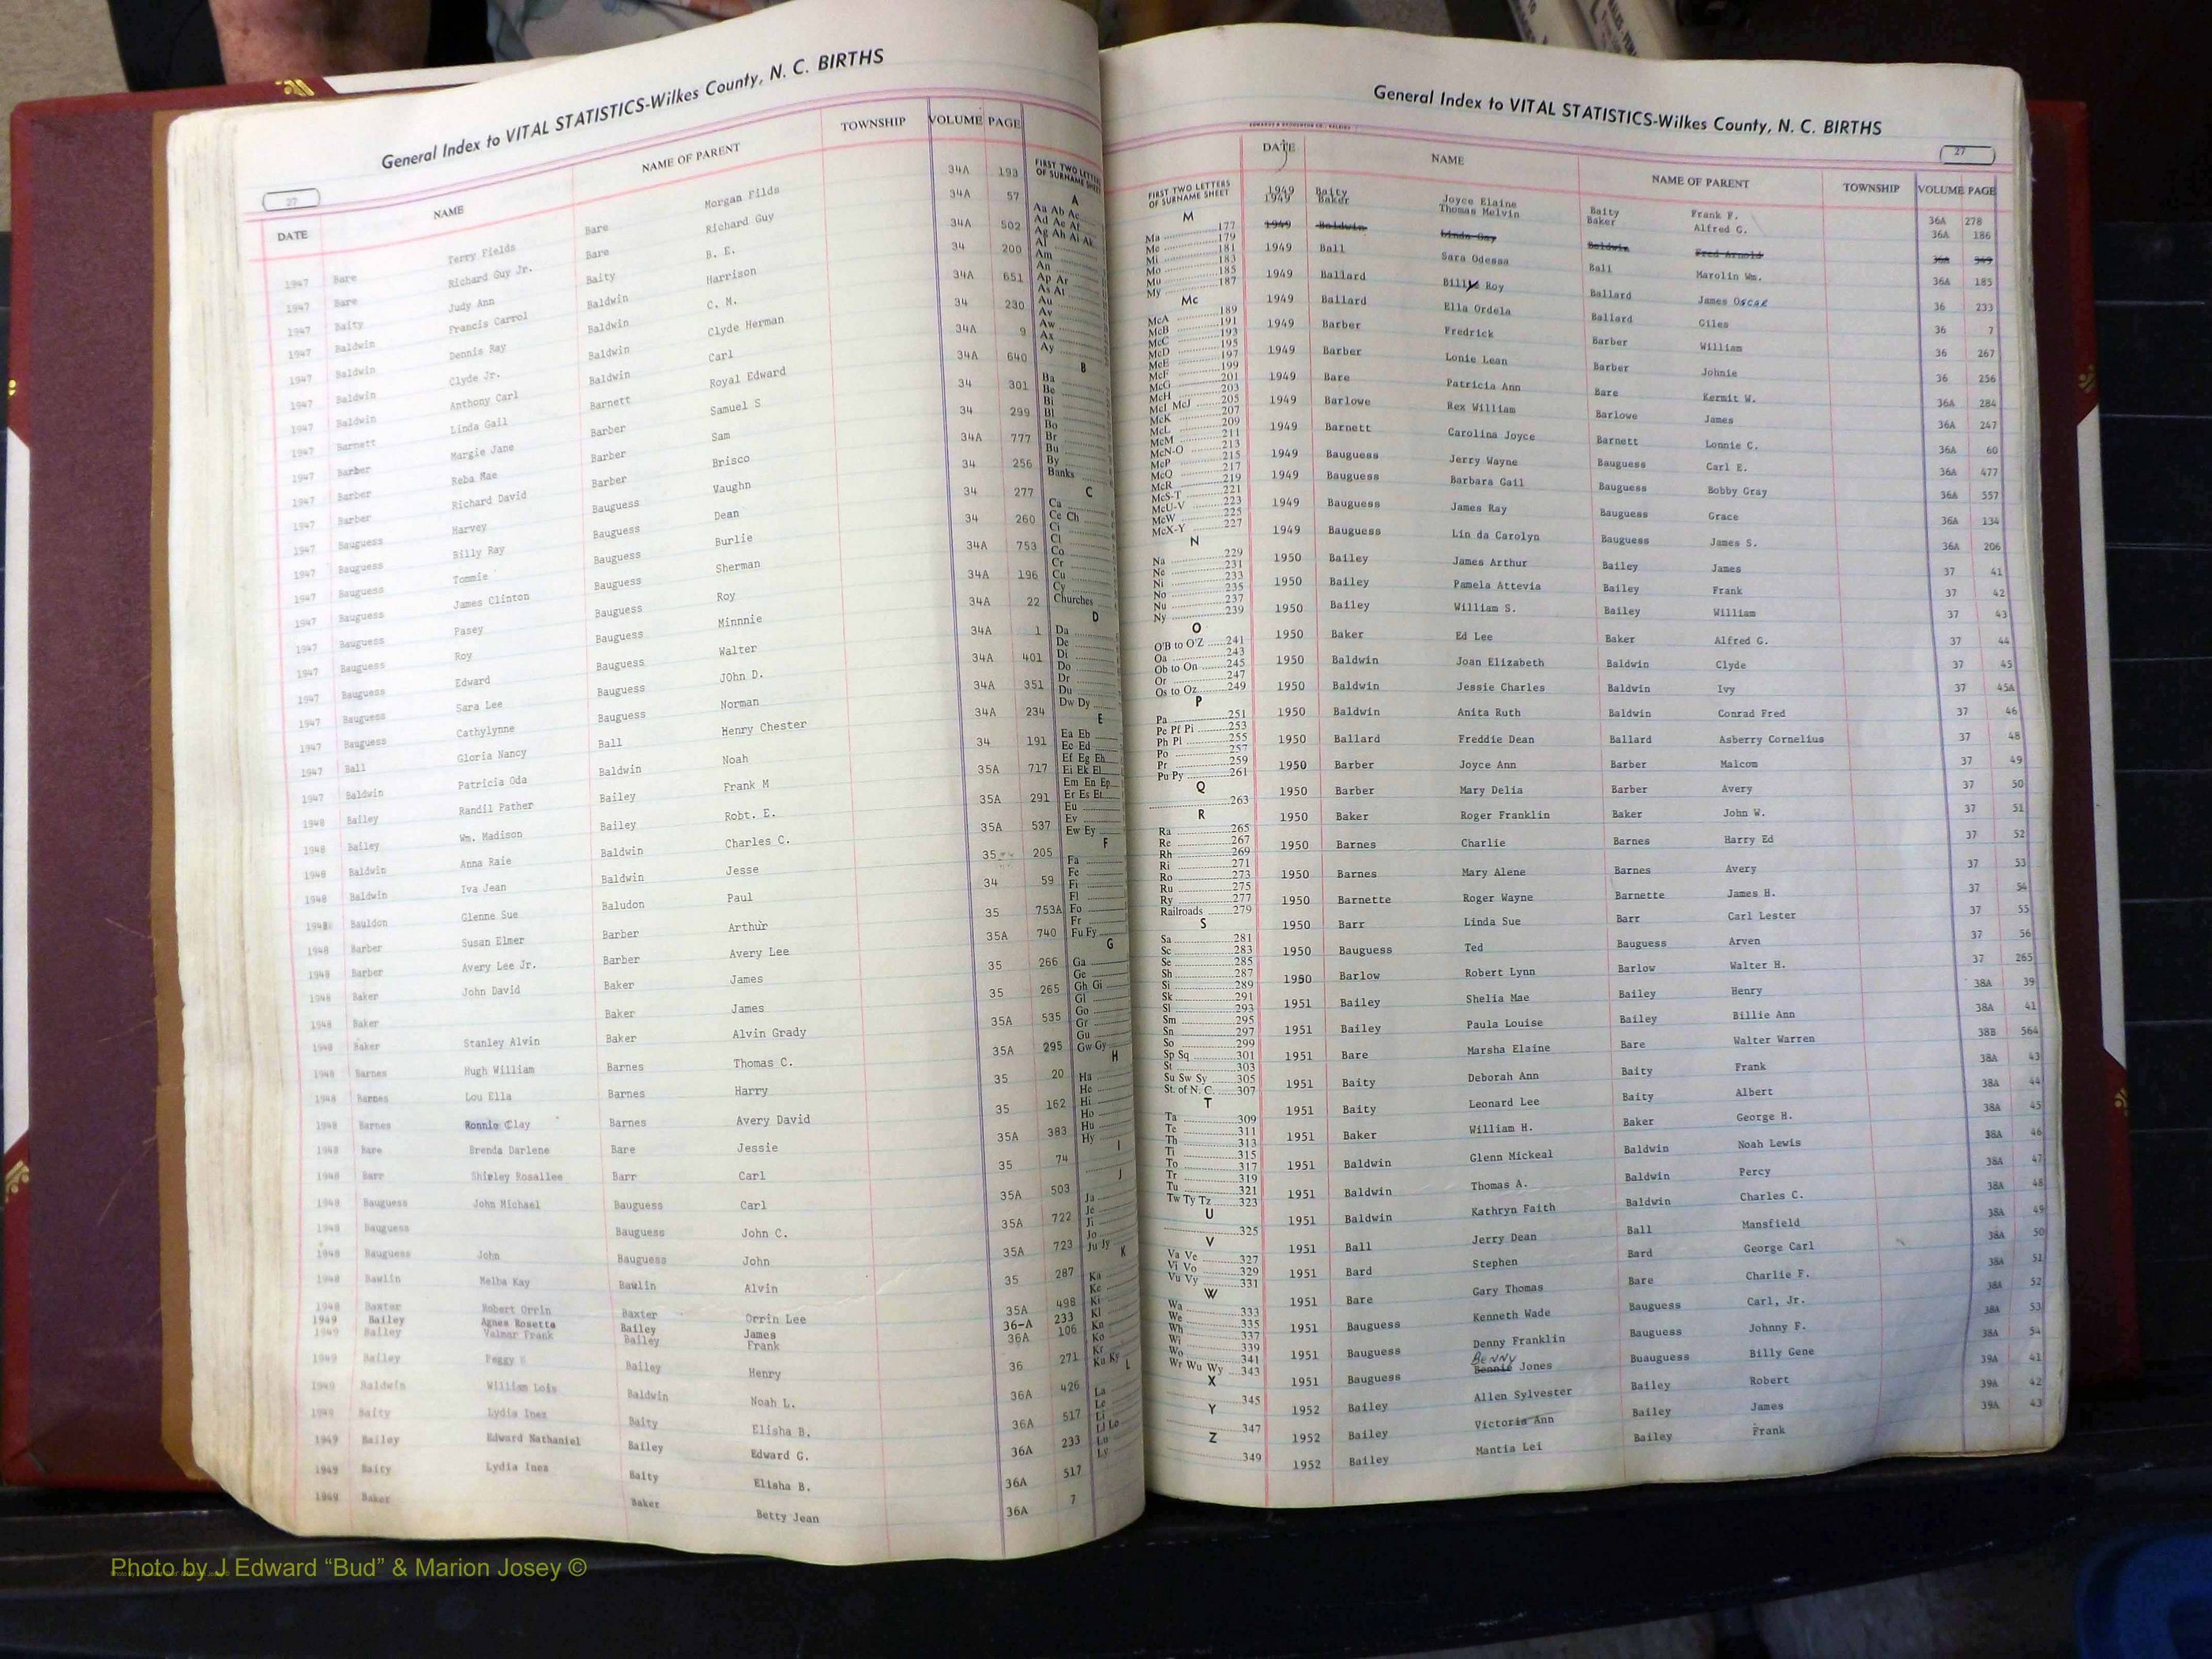 General Index to VITAL STATISTICS-Wilkes County, N. C. BIRTHS
27
DATE NAME NAME OF PARENT TOWNSHIP VOLUME PAGE
1947 Bare Terry Fields Bare Morgan Filds 34A 193
1947 Bare Richard Guy Jr. Bare Richard Guy 34A 57
1947 Baity Judy Ann Baity B. E. 34A 502
1947 Baldwin Francis Carrol Baldwin Harrison 34 200
1947 Baldwin Dennis Ray Baldwin C. M. 34A 651
1947 Baldwin Clyde Jr. Baldwin Clyde Herman 34 230
1947 Baldwin Anthony Carl Baldwin Carl 34A 9
1947 Barnett Linda Gail Barnett Royal Edward 34A 640
1947 Barber Margie Jane Barber Samuel S 34 301
1947 Barber Reba Mae Barber Sam 34 299
1947 Barber Richard David Barber Brisco 34A 777
1947 Bauguess Harvey Bauguess Vaughn 34 256
1947 Bauguess Billy Ray Bauguess Dean 34 277
1947 Bauguess Tommie Bauguess Burlie 34 260
1947 Bauguess James Clinton Bauguess Sherman 34A 753
1947 Bauguess Pasey Bauguess Roy 34A 196
1947 Bauguess Roy Bauguess Minnnie 34A 22
1947 Bauguess Edward Bauguess Walter 34A 1
1947 Bauguess Sara Lee Bauguess JOhn D. 34A 401
1947 Bauguess Cathylynne Bauguess Norman 34A 351
1947 Ball Gloria Nancy Ball Henry Chester 34A 234
1947 Baldwin Patricia Oda Baldwin Noah 34 191
1948 Bailey Randil Pather Bailey Frank M 35A 717
1948 Bailey Wm. Madison Bailey Robt. E. 35A 291
1948 Baldwin Anna Raie Baldwin Charles C. 35A 537
1948 Baldwin Iva Jean Baldwin Jesse 35 205
1948 Bauldon Glenne Sue Baludon Paul 34 59
1948 Barber Susan Elmer Barber Arthur 35 753A
1948 Barber Avery Lee Jr. Barber Avery Lee 35A 740
1948 Baker John David Baker James 35 266
1948 Baker Baker James 35 265
1948 Baker Stanley Alvin Baker Alvin Grady 35A 535
1948 Barnes Hugh William Barnes Thomas C. 35A 295
1948 Barnes Lou Ella Barnes Harry 35 20
1948 Barnes Ronnie Clay Barnes Avery David 35 162
1948 Bare Brenda Darlene Bare Jessie 35A 383
1948 Barr Shirley Rosallee Barr Carl 35 74
1948 Bauguess John Michael Bauguess Carl 35A 503
1948 Bauguess Bauguess John C. 35A 722
1948 Bauguess John Bauguess John 35A 723
1948 Bawlin Melba Kay Bawlin Alvin 35 287
1948 Baxter Robert Orrin Baxter Orrin Lee 35A 498
1949 Bailey Agnes Rosetta Bailey James 36-A 233
1949 Bailey Valmar Frank Bailey Frank 36A 106
1949 Bailey Peggy Bailey Henry 36 271
1949 Baldwin William Lois Baldwin Noah L. 36A 426
1949 Baity Lydia Inez Baity Elisha B. 36A 517
1949 Bailey Edward Nathaniel Bailey Edward G. 36A 233
1949 Baity Lydia Inez Baity Elisha B. 36A 517
1949 Baker Baker Betty Jean 36A 7
FIRST TWO LETTERS OF SURNAME SHEET
A
Aa Ab Ac
Ad Ae Af
Ag Ah Ai Ak
Al
Am
An
Ap Ar
As At
Au
Av
Aw
Ax
Ay
B
Ba
Be
Bi
Bl
Bo
Br
Bu
By
Banks
C
Ca
Ce Ch
Ci
Cl
Co
Cr
Cu
Cy
Churches
D
Da
De
Di
Do
Dr
Du
Dw Dy
E
Ea Eb
Ec Ed
Ef Eg Eh
Ei Ek El
Em En Ep
Er Es Et
Eu
Ev
Ew Ey
F
Fa
Fe
Fi
Fl
Fo
Fr
Fu Fy
G
Ga
Ge
Gh Gi
Gl
Go
Gr
Gu
Gw Gy
H
Ha
He
Hi
Ho
Hu
Hy
I
J
Ja
Je
Ji
Jo
Ju Jy
K
Ka
Ke
Ki
Kl
Kn
Ko
Kr
Ku Ky
L
La
Le
Li
Ll Lo
Lu
Ly
General Index to VITAL STATISTICS-Wilkes County, N. C. BIRTHS
27
FIRST TWO LETTERS OF SURNAME SHEET
M
Ma 177
Me 179
Mi 181
Mo 183
Mu 185
My 187
Mc
McA 189
McB 191
McC 193
McD 195
McE 197
McF 199
McG 201
McH 203
McI McJ 205
McK 207
McL 209
McM 211
McN-O 213
McP 215
McQ 217
McR 219
McS-T 221
McU-V 223
McW 225
McX-Y 227
N
Na 229
Ne 231
Ni 233
No 235
Nu 237
Ny 239
O
O'B to O'Z 241
Oa 243
Ob to On 245
Or 247
Os to Oz 249
P
Pa 251
Pe Pf Pi 253
Ph Pl 255
Po 257
Pr 259
Pu Py 261
Q
263
R
Ra 265
Re 267
Rh 269
Ri 271
Ro 273
Ru 275
Ry 277
Railroads 279
S
Sa 281
Sc 283
Se 285
Sh 287
Si 289
Sk 291
Sl 293
Sm 295
Sn 297
So 299
Sp Sq 301
St 303
Su Sw Sy 305
St. of N. C. 307
T
Ta 309
Te 311
Th 313
Ti 315
To 317
Tr 319
Tu 321
Tw Ty Tz 323
U
325
V
Va Ve 327
Vi Vo 329
Vu Vy 331
W
Wa 333
We 335
Wh 337
Wi 339
Wo 341
Wr Wu Wy 343
X
345
Y
347
Z
349
DATE NAME NAME OF PARENT TOWNSHIP VOLUME PAGE
1949 Baity Joyce Elaine Baity Frank F. 36A 278
1949 Baker Thomas Melvin Baker Alfred G. 36A 186
1949 Baldwin Linda Gay Baldwin Fred Arnold 36A 349
1949 Ball Sara Odessa Ball Marolin Wm. 36A 185
1949 Ballard Billy Roy Ballard James Oscar 36 233
1949 Ballard Ella Ordela Ballard Giles 36 7
1949 Barber Fredrick Barber William 36 267
1949 Barber Lonie Lean Barber Johnie 36 256
1949 Bare Patricia Ann Bare Kermit W. 36A 284
1949 Barlowe Rex William Barlowe James 36A 247
1949 Barnett Carolina Joyce Barnett Lonnie C. 36A 60
1949 Bauguess Jerry Wayne Bauguess Carl E. 36A 477
1949 Bauguess Barbara Gail Bauguess Bobby Gray 36A 557
1949 Bauguess James Ray Bauguess Grace 36A 134
1949 Bauguess Lin da Carolyn Bauguess James S. 36A 206
1950 Bailey James Arthur Bailey James 37 41
1950 Bailey Pamela Attevia Bailey Frank 37 42
1950 Bailey William S. Bailey William 37 43
1950 Baker Ed Lee Baker Alfred G. 37 44
1950 Baldwin Joan Elizabeth Baldwin Clyde 37 45
1950 Baldwin Jessie Charles Baldwin Ivy 37 45A
1950 Baldwin Anita Ruth Baldwin Conrad Fred 37 46
1950 Ballard Freddie Dean Ballard Asberry Cornelius 37 48
1950 Barber Joyce Ann Barber Malcom 37 49
1950 Barber Mary Delia Barber Avery 37 50
1950 Baker Roger Franklin Baker John W. 37 51
1950 Barnes Charlie Barnes Harry Ed 37 52
1950 Barnes Mary Alene Barnes Avery 37 53
1950 Barnette Roger Wayne Barnette James H. 37 54
1950 Barr Linda Sue Barr Carl Lester 37 55
1950 Bauguess Ted Bauguess Arven 37 56
1950 Barlow Robert Lynn Barlow Walter H. 37 265
1951 Bailey Shelia Mae Bailey Henry 38A 39
1951 Bailey Paula Louise Bailey Billie Ann 38A 41
1951 Bare Marsha Elaine Bare Walter Warren 38B 564
1951 Baity Deborah Ann Baity Frank 38A 43
1951 Baity Leonard Lee Baity Albert 38A 44
1951 Baker William H. Baker George H. 38A 45
1951 Baldwin Glenn Mickeal Baldwin Noah Lewis 38A 46
1951 Baldwin Thomas A. Baldwin Percy 38A 47
1951 Baldwin Kathryn Faith Baldwin Charles C. 38A 48
1951 Ball Jerry Dean Ball Mansfield 38A 49
1951 Bard Stephen Bard George Carl 38A 50
1951 Bare Gary Thomas Bare Charlie F. 38A 51
1951 Bauguess Kenneth Wade Bauguess Carl, Jr. 38A 52
1951 Bauguess Denny Franklin Bauguess Johnny F. 38A 53
1951 Bauguess Benny Bennie Jones Buauguess Billy Gene 38A 54
1952 Bailey Allen Sylvester Bailey Robert 39A 41
1952 Bailey Victoria Ann Bailey James 39A 42
1952 Bailey Mantia Lei Bailey Frank 39A 43
Photo by J Edward “Bud” & Marion Josey ©